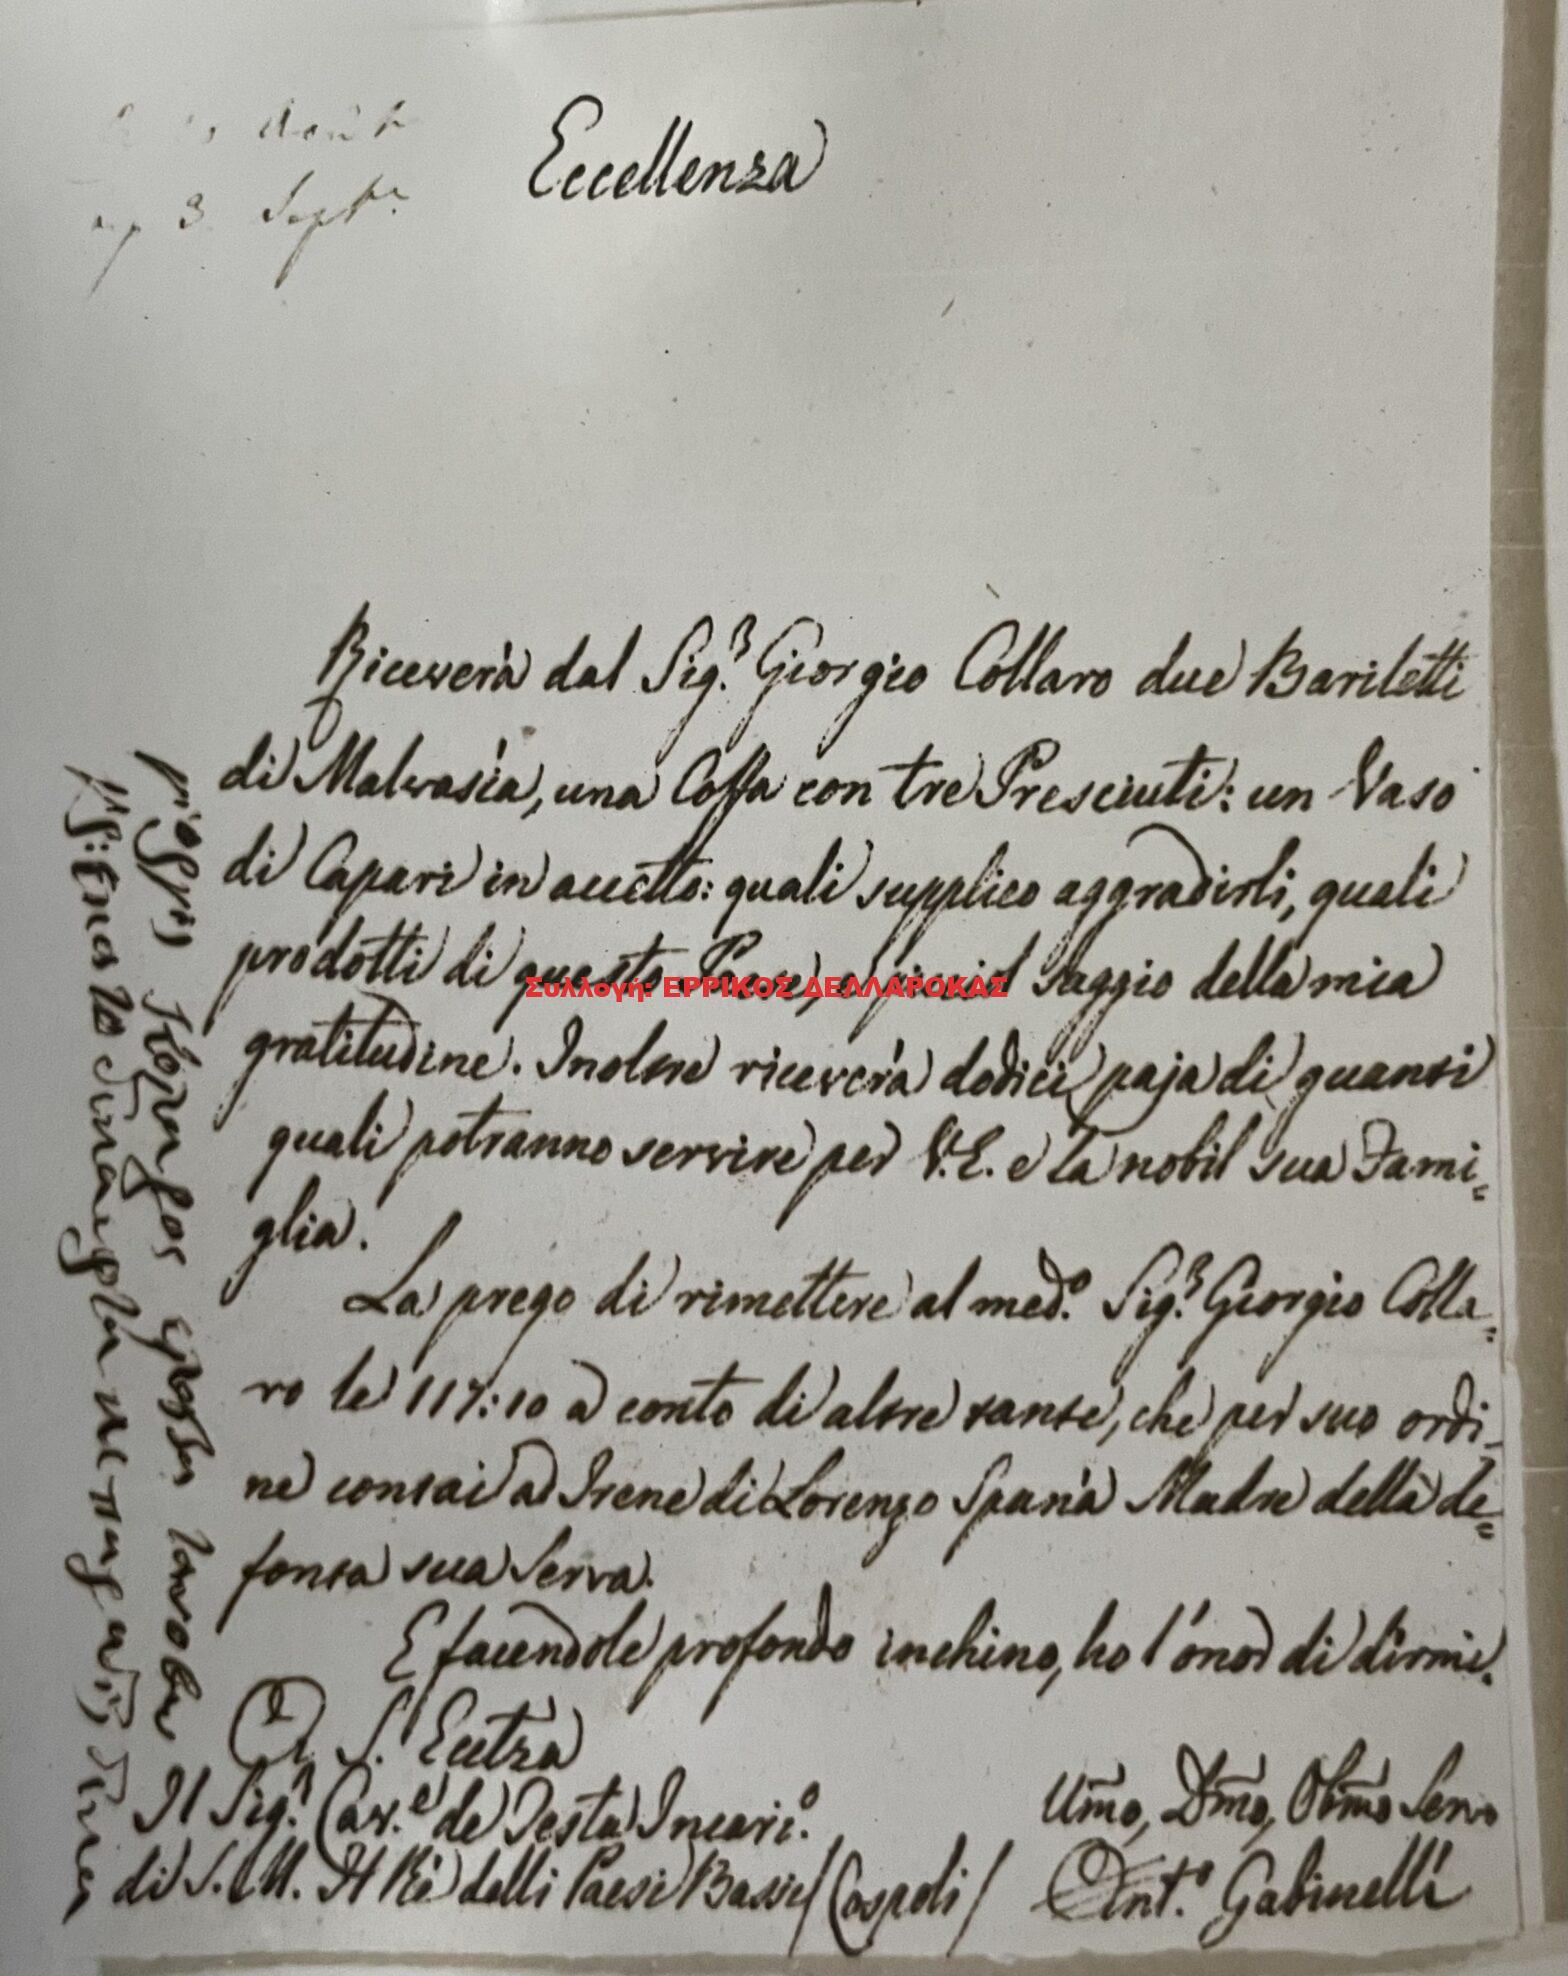 Août
3 Sept.e
Eccellenza
Riceverà dal Sig.r Giorgio Collaro due Bariletti
di Malvasia, una Coffa con tre Presciuti: un Vaso
di Capari in accetto: quali supplico aggradirli, quali
prodotti di questo Paese, e picciol saggio della mia
gratitudine. Inoltre riceverà dodici paja di guanti
quali potranno servire per V.E. e la nobil sua Fami=
glia.
La prego di rimettere al med.o Sig.r Giorgio Colla=
ro le 117:10 a conto di altre tante, che per suo ordi=
ne contai a Irene di Lorenzo Spanà Madre della de=
fonta sua Serva.
E facendole profondo inchino, ho l'onor di dirmi.
Di S. Ecctza
Il Sig.r Cav.e de Testa Incari.o
di S. M. Il Rè delli Paesi Bassi / Cospoli /
Umo, Dmo, Obmo Servo
Ant.o Gabinelli
Συλλογή: ΕΡΡΙΚΟΣ ΔΕΛΛΑΡΟΚΑΣ